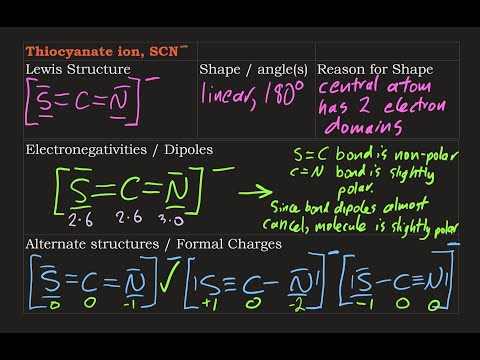 Thiocyanate ion, SCN⁻
Lewis Structure
[S=C=N]⁻
Shape / angle(s)
linear, 180°
Reason for Shape
central atom
has 2 electron
domains
Electronegativities / Dipoles
[S=C=N]⁻ →
2.6 2.6 3.0
S=C bond is non-polar
C=N bond is slightly
polar.
Since bond dipoles almost
cancel, molecule is slightly polar
Alternate structures / Formal Charges
[S=C=N]⁻ ✓ [|S≡C-N|]⁻ [|S-C≡N|]⁻
0 0 -1 +1 0 -2 -1 0 0